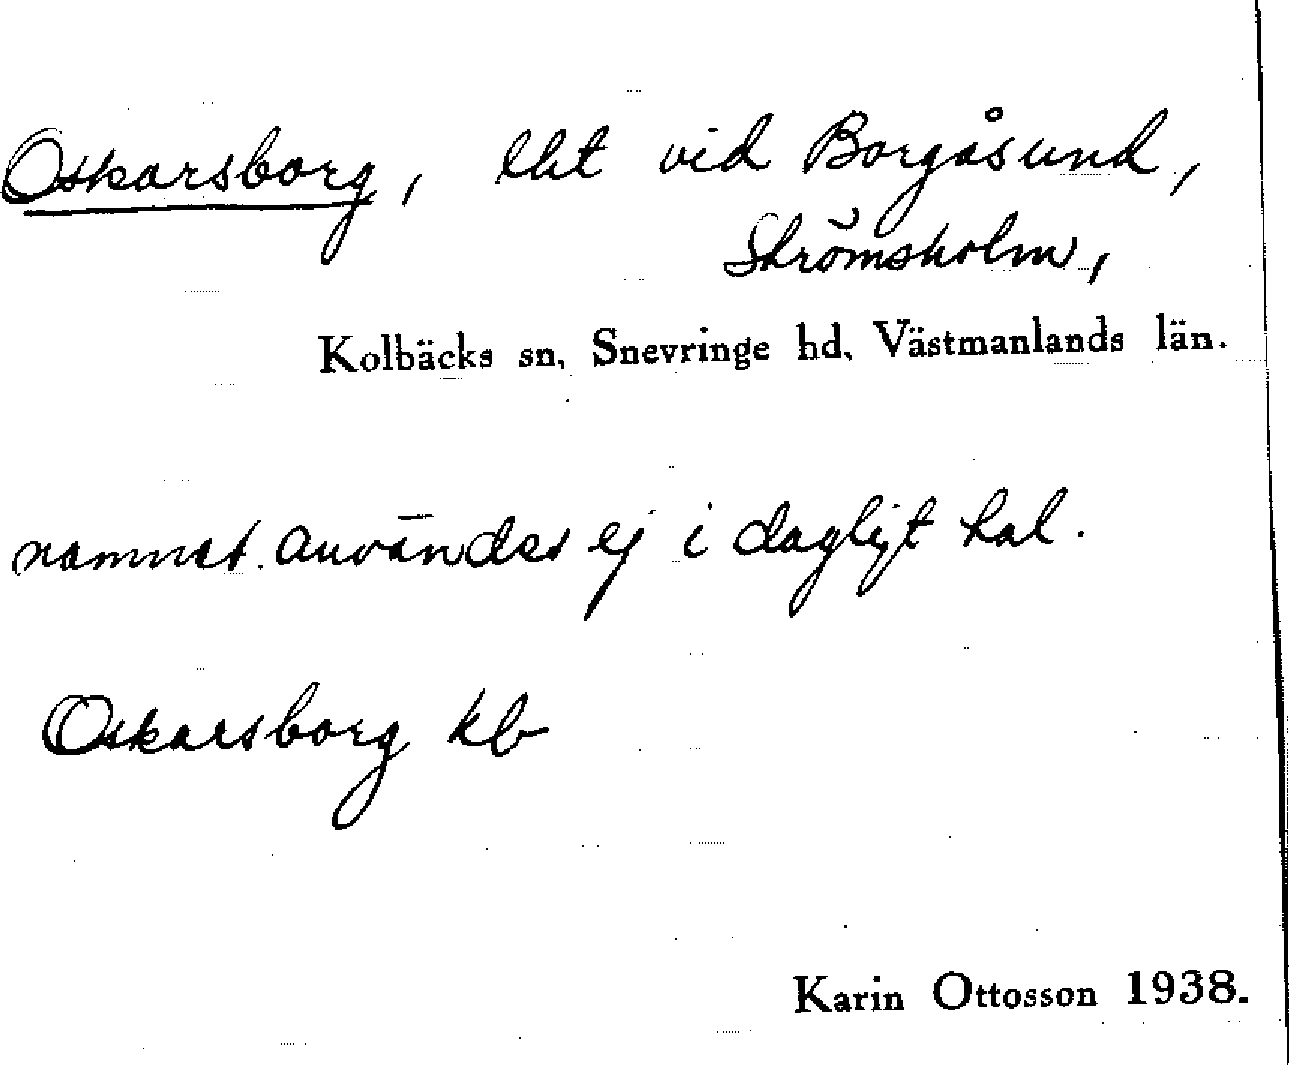 Oskarsborg, lht vid Borgåsund,
Strömsholm,
Kolbäcks sn, Snevringe hd, Västmanlands län.
namnet användes ej i dagligt tal.
Oskarsborg kb
Karin Ottosson 1938.